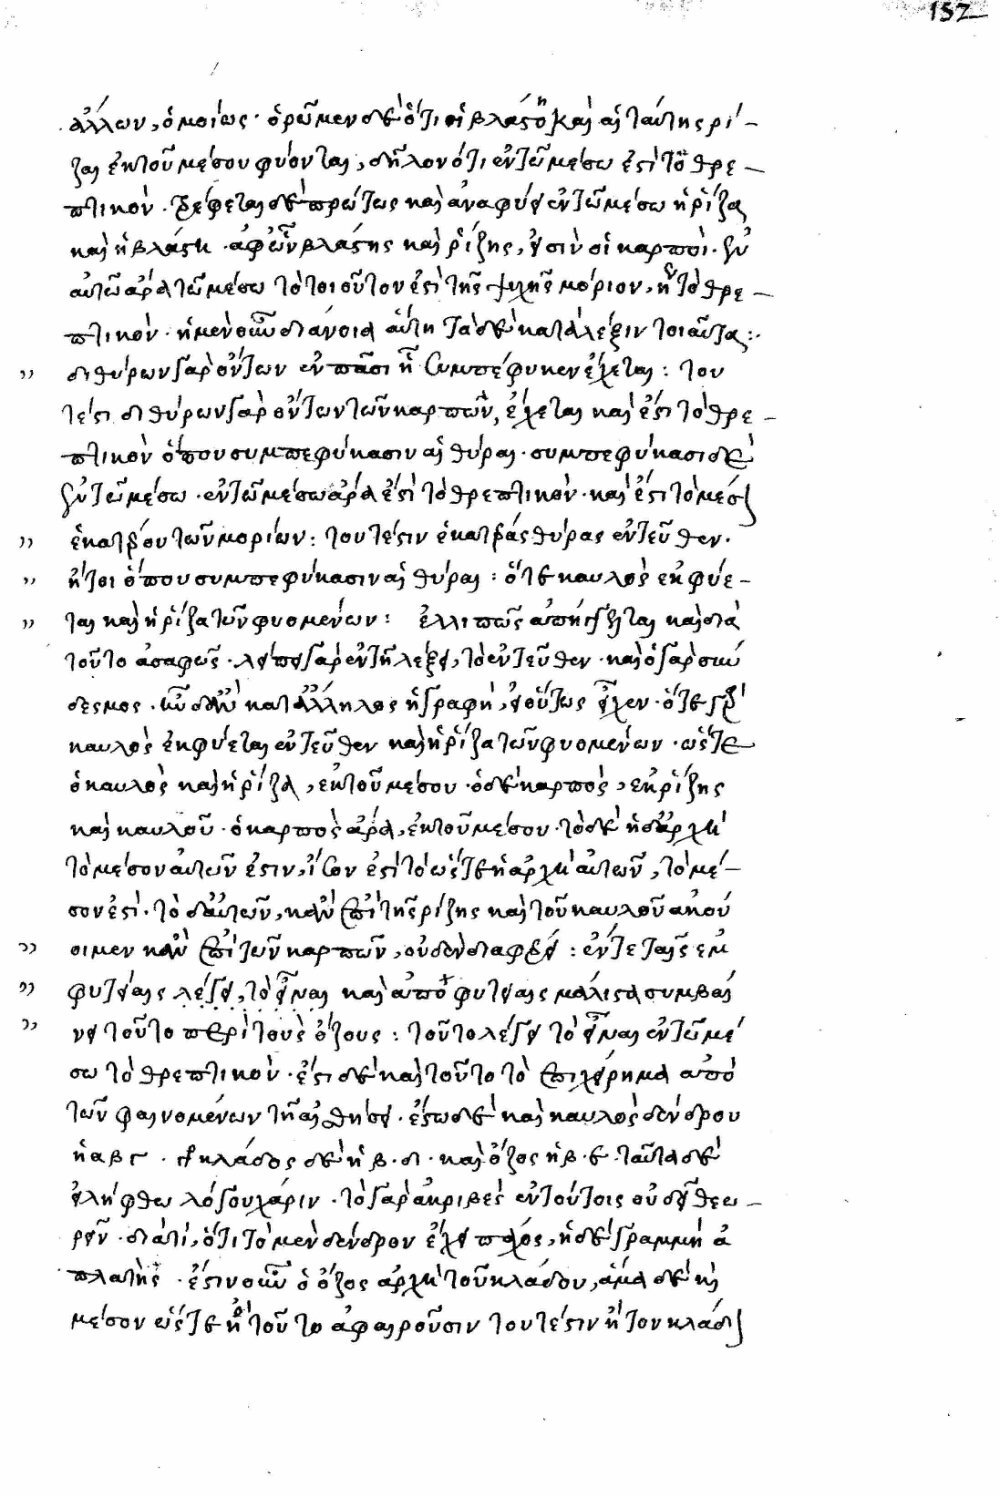 152
ἄλλων, ὁμοίως· ὁρῶμεν δὲ ὅτι οἱ βλαστοὶ καὶ αἱ ταύτης ρί-
ζαι ἐκ τοῦ μέσου φύονται, δῆλον ὅτι ἐν τῶ μέσω ἐστὶ τὸ θρε-
πτικόν· τρέφεται δὲ πρώτως καὶ ἀναφύει ἐν τῶ μέσω ἡ ρίζα
καὶ ἡ βλάστη· ἀφ' ὧν βλάστης καὶ ρίζης, εἰσὶν οἱ καρποί· ἐν
αὐτῶ ἄρα τῶ μέσω τὸ τοιοῦτον ἐστὶ τῆς ψυχῆς μόριον, ἤγουν τὸ θρε-
πτικόν· ἡ μὲν οὖν διάνοια αὕτη τὰ δὲ κατὰ λέξιν τοιαῦτα:·
" διθύρων γὰρ ὄντων ἐν πᾶσι ἧ συμπέφυκεν ἔχεται: του
τέστι διθύρων γὰρ ὄντων τῶν καρπῶν, ἔχεται καὶ ἔστι τὸ θρε-
πτικὸν ὅπου συμπεφύκασιν αἱ θύραι· συμπεφύκασι δὲ
ἐν τῶ μέσω· ἐν τῶ μέσω ἄρα ἐστὶ τὸ θρεπτικόν· καὶ ἔστι τὸ μέσον
" ἑκατέρου τῶν μορίων: τουτέστιν ἑκατέρας θύρας ἐντεῦθεν·
" ἤτοι ὅπου συμπεφύκασιν αἱ θύραι: ὅ τε καυλὸς ἐκφύε-
" ται καὶ ἡ ρίζα τῶν φυομένων: ἐλλιπῶς ἀπήγγελται καὶ διὰ
τοῦτο ἀσαφῶς· λείπει γὰρ ἐν τῆ λέξει, τὸ ἐντεῦθεν· καὶ ὁ γὰρ σύν
δεσμος· ὡς δ' ἂν κατάλληλος ἡ γραφὴ, εἰ οὕτως εἶχεν· ὅ τε γὰρ
καυλὸς ἐκφύεται ἐντεῦθεν καὶ ἡ ρίζα τῶν φυομένων· ὥστε
ὁ καυλὸς καὶ ἡ ρίζα, ἐκ τοῦ μέσου· ὁ δὲ καρπὸς, ἐκ ρίζης
καὶ καυλοῦ· ὁ καρπὸς ἄρα, ἐκ τοῦ μέσου· τὸ δὲ ἡ δ' ἀρχὴ
τὸ μέσον αὐτῶν ἐστιν, ἴσον ἐστὶ τὸ ὥστε ἡ ἀρχὴ αὐτῶν, τὸ μέ-
σον ἐστί· τὸ δ' αὐτῶν, κἂν ἐπὶ τῆς ρίζης καὶ τοῦ καυλοῦ ἀκού
" οιμεν κἂν ἐπὶ τῶν καρπῶν, οὐδὲν διαφέρει: ἔν τε ταῖς ἐμ
" φυτείαις λέγει, τὸ εἶναι καὶ ἀποφυτείαις μάλιστα συμβαί
" νει τοῦτο περὶ τοὺς ὄζους: τοῦτο λέγει τὸ εἶναι ἐν τῶ μέ
σω τὸ θρεπτικόν· ἔστι δὲ καὶ τοῦτο τὸ ἐπιχείρημα ἀπὸ
τῶν φαινομένων τῆ αἰσθήσει· ἔστω δὲ καὶ καυλὸς δένδρου
ἡ αβγ· κλάδος δὲ ἡ β·δ· καὶ ὄζος ἡ β·ε· ταῦτα δὲ
εἰλήφθω λόγου χάριν· τὸ γὰρ ἀκριβὲς ἐν τούτοις οὐ δεῖ θεω-
ρεῖν· διατί, ὅτι τὸ μὲν δένδρον ἔχει πάχος, ἡ δὲ γραμμὴ ἀ
πλατής· ἔστιν οὖν ὁ ὄζος ἀρχὴ τοῦ κλάδου, ἅμα δὲ καὶ
μέσον ὥστε ἢ τοῦτο ἀφαιροῦσιν τουτέστιν ἢ τὸν κλάδον